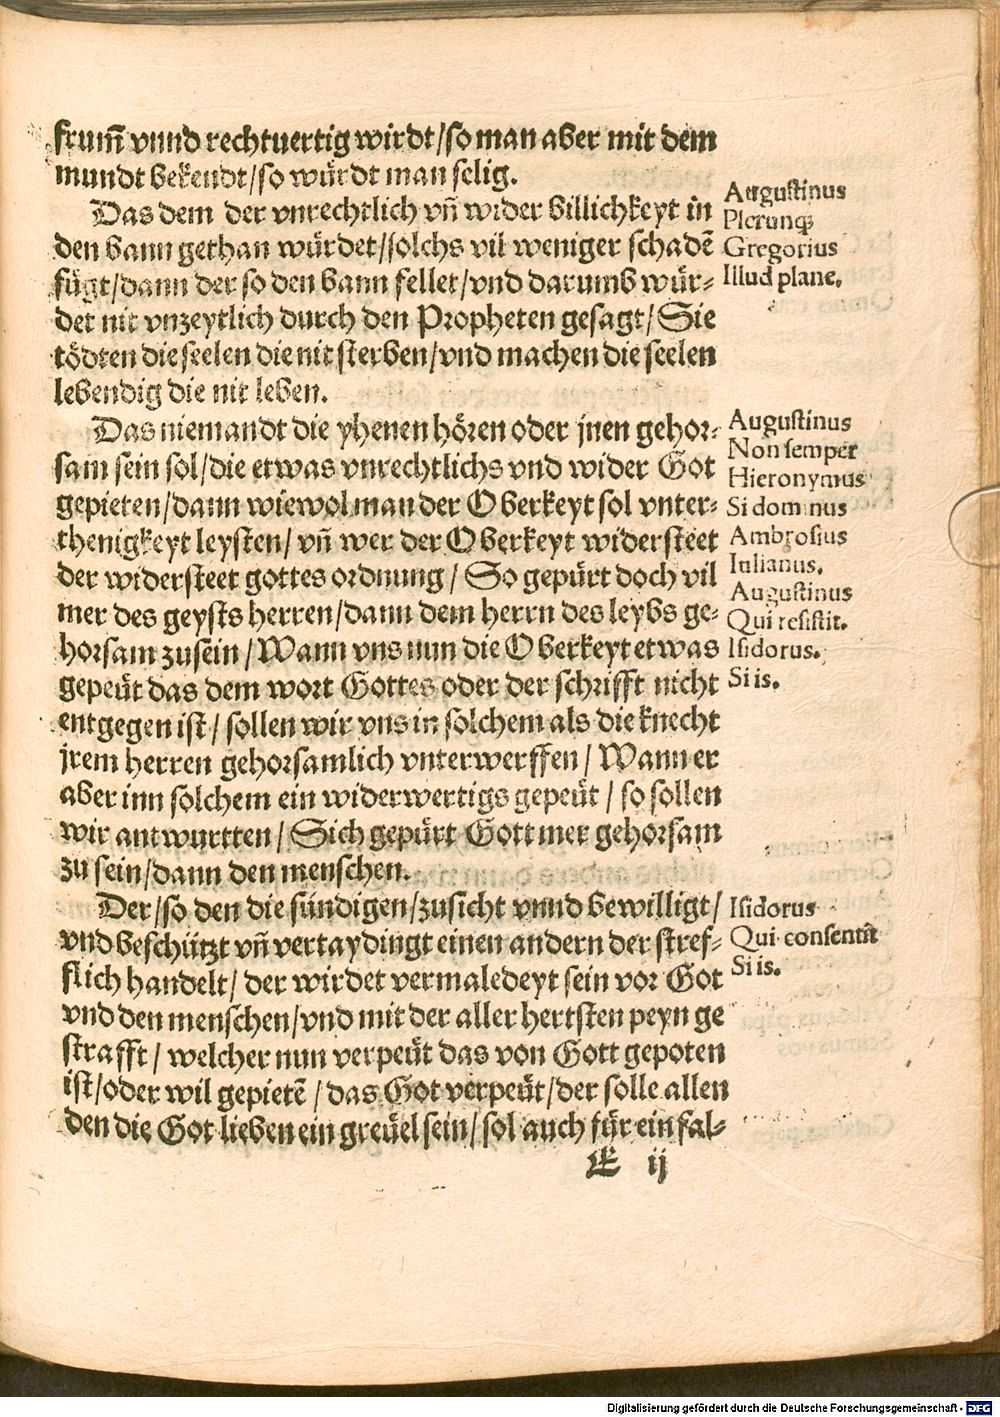 frum̃ vnnd rechtuertig wirdt/so man aber mit dem
mundt bekendt/so würdt man selig.
Das dem der vnrechtlich vñ wider billichkeyt in
den bann gethan würdet/solchs vil weniger schadẽ
fügt/dann der so den bann fellet/vnd darumb wür-
det nit vnzeytlich durch den Propheten gesagt/Sie
tödten die seelen die nit sterben/vnd machen die seelen
lebendig die nit leben.
Augustinus
Plerunq̃
Gregorius
Illud plane.
Das niemandt die yhenen hören oder jnen gehor-
sam sein sol/die etwas vnrechtlichs vnd wider Got
gepieten/dann wiewol man der Oberkeyt sol vnter-
thenigkeyt leysten/vñ wer der Oberkeyt widersteet
der widersteet gottes ordnung/So gepürt doch vil
mer des geysts herren/dann dem herrn des leybs ge-
horsam zusein/Wann vns nun die Oberkeyt etwas
gepeüt das dem wort Gottes oder der schrifft nicht
entgegen ist/sollen wir vns in solchem als die knecht
jrem herren gehorsamlich vnterwerffen/Wann er
aber inn solchem ein widerwertigs gepeüt/so sollen
wir antwurtten/Sich gepürt Gott mer gehorsam
zu sein/dann den menschen.
Augustinus
Non semper
Hieronymus
Si dominus
Ambrosius
Iulianus.
Augustinus
Qui resistit.
Isidorus.
Si is.
Der/so den die sündigen/zusicht vnnd bewilligt/
vnd beschützt vñ vertaydingt einen andern der stref-
flich handelt/der wirdet vermaledeyt sein vor Got
vnd den menschen/vnd mit der aller hertsten peyn ge
strafft/welcher nun verpeüt das von Gott gepoten
ist/oder wil gepietẽ/das Got verpeüt/der solle allen
den die Got lieben ein greüel sein/sol auch für ein fal-
Isidorus
Qui consentit
Si is.
E ij
Digitalisierung gefördert durch die Deutsche Forschungsgemeinschaft - DFG